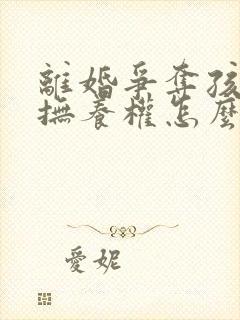 離婚爭奪孩
撫養權怎麼
愛妮